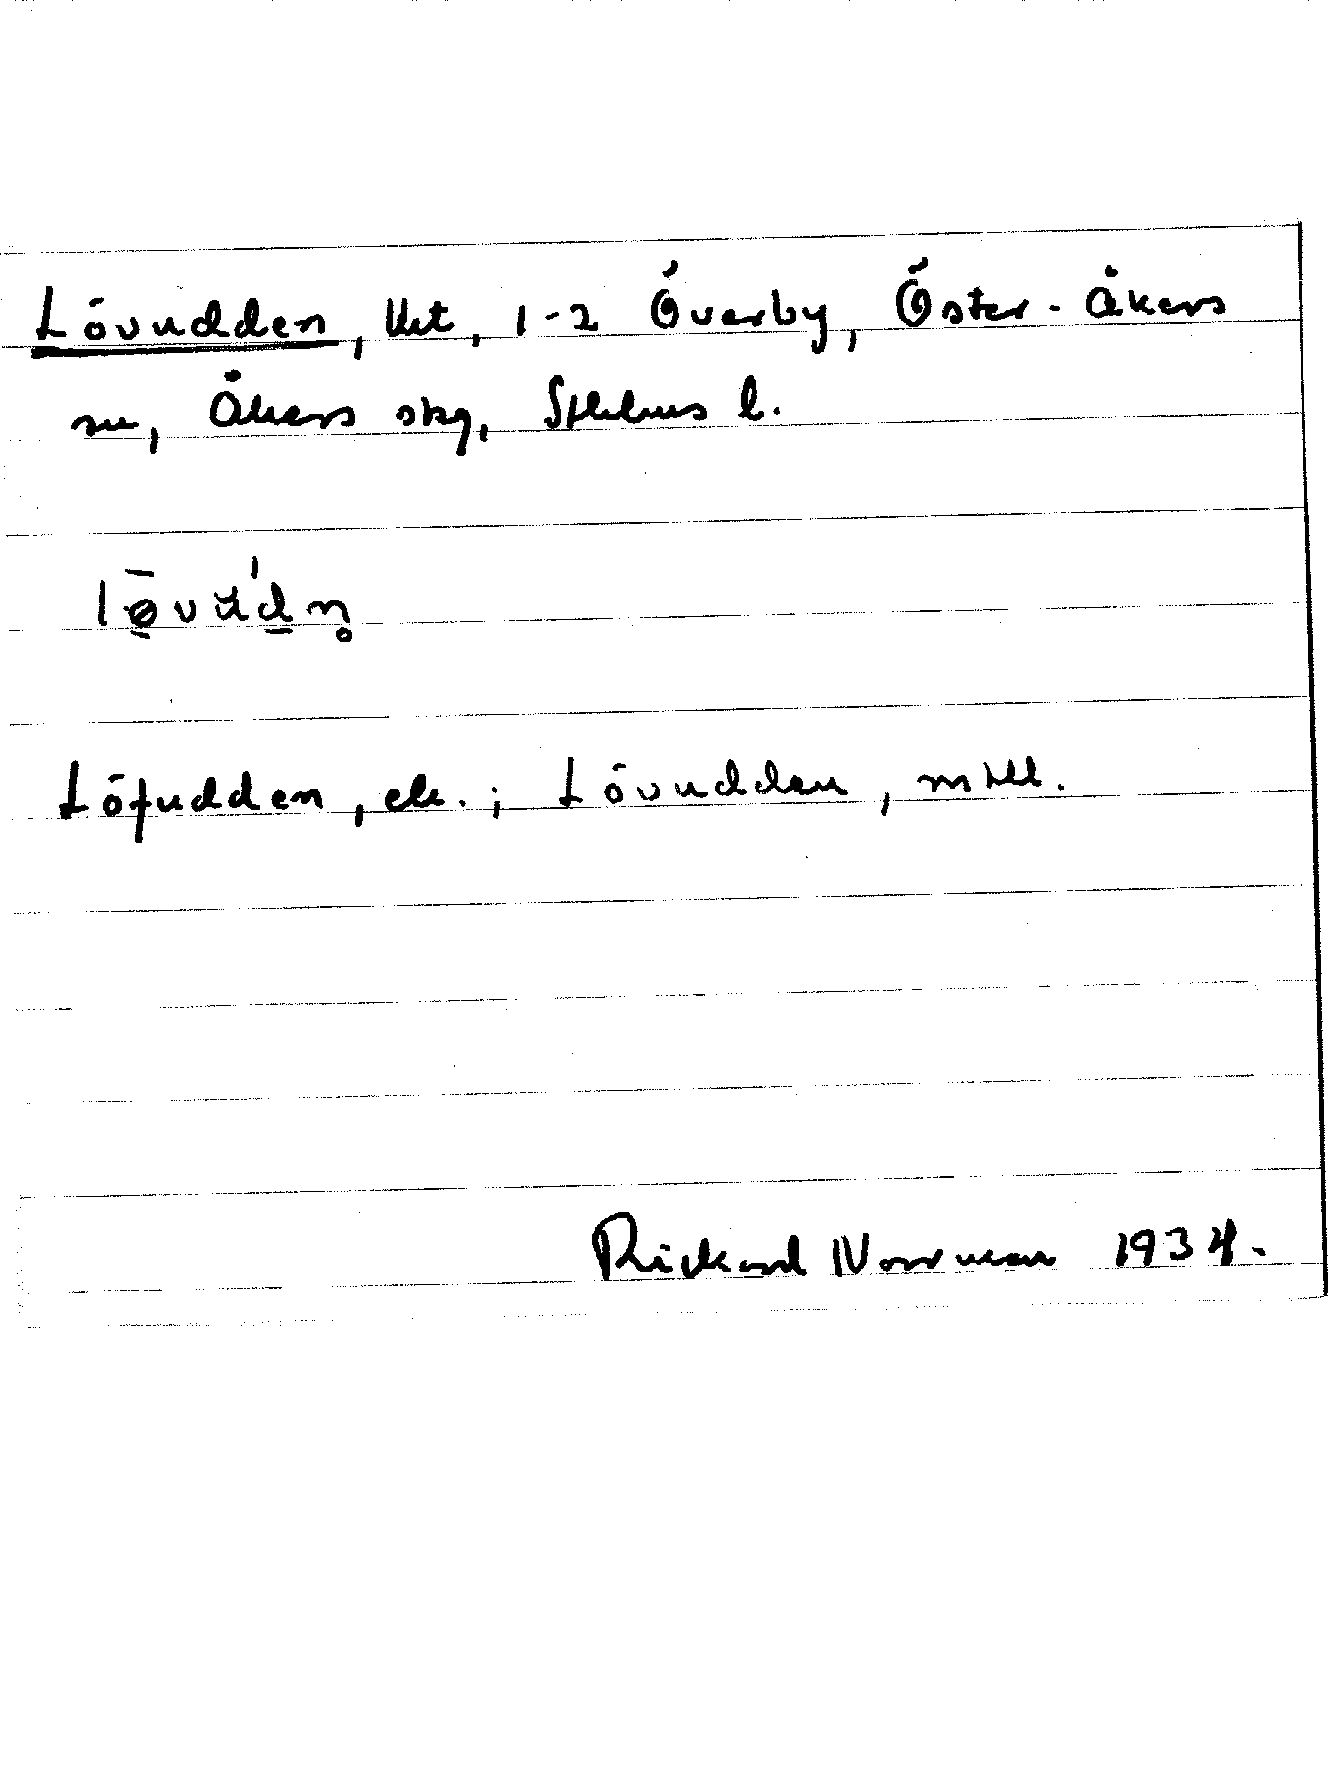 Lövudden, lht, 1-2 Överby, Öster-Åkers
sn, Åkers skg, Sthlms l.
Löfudden, ek.; Lövudden, mtll.
Rickard Norrman 1934.